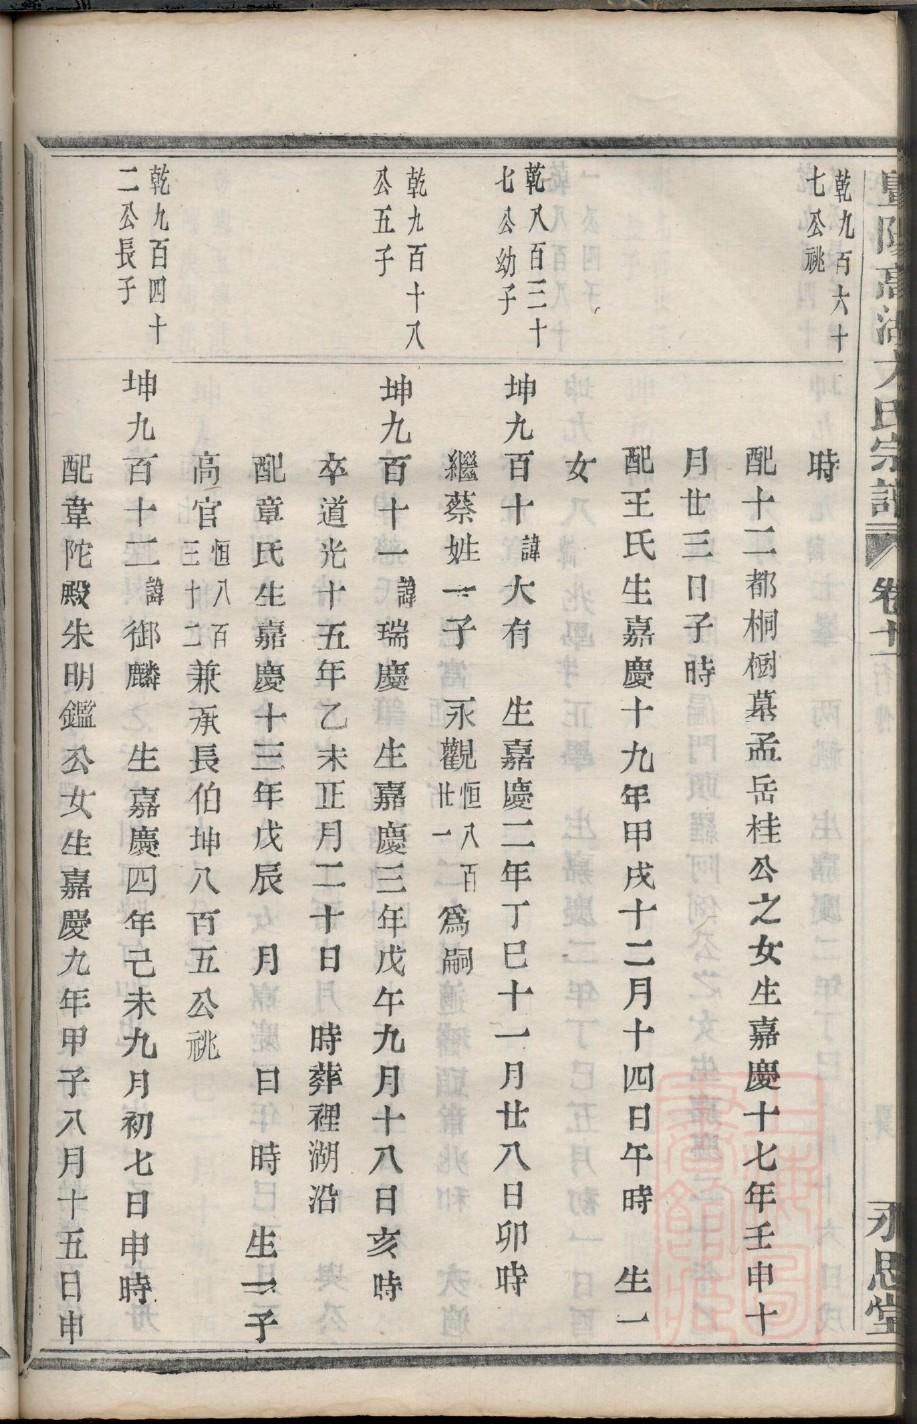 暨陽高湖大氏宗譜 卷十 永思堂
乾九百六十
七公祧
時
配十二都桐梱墓孟岳桂公之女生嘉慶十七年壬申十
月廿三日子時
配王氏生嘉慶十九年甲戌十二月十四日午時 生一
女
乾八百三十
七公幼子
坤九百十諱大有 生嘉慶二年丁巳十一月廿八日卯時
繼蔡姓一子 永觀恒八百廿一爲嗣
乾九百十八
公五子
坤九百十一諱瑞慶 生嘉慶三年戊午九月十八日亥時
卒道光十五年乙未正月二十日 時葬裡湖沿
配章氏生嘉慶十三年戊辰 月 日 時 生一子
高官恒八百三十二兼承長伯坤八百五公祧
乾九百四十
二公長子
坤九百十二諱御麟 生嘉慶四年己未九月初七日申時
配韋陀殿朱明鑑公女生嘉慶九年甲子八月十五日申